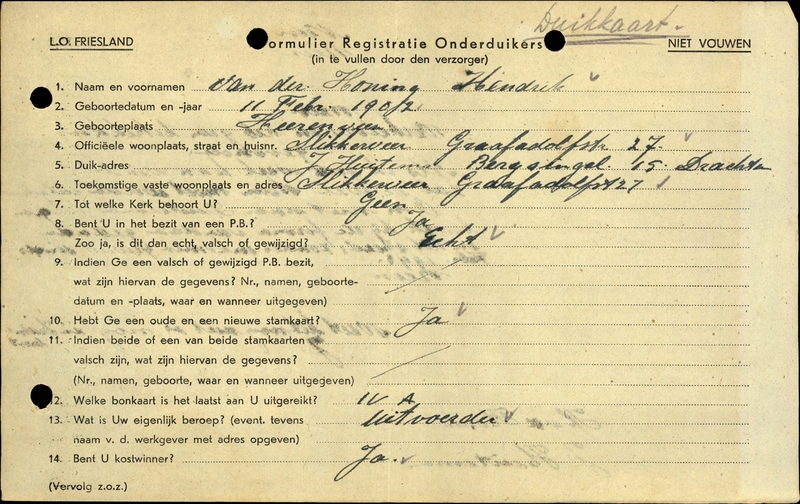 Duikkaart.
L.O. FRIESLAND
Formulier Registratie Onderduikers
NIET VOUWEN
(in te vullen door den verzorger)
1. Naam en voornamen van der Honing Hendrik
2. Geboortedatum en -jaar 11 Febr. 1902
3. Geboorteplaats Heerenveen
4. Officiëele woonplaats, straat en huisnr. Slikkerveer Graafadolfstr 27.
5. Duik-adres J. Huitema Bergsingel 15. Drachten
6. Toekomstige vaste woonplaats en adres Slikkerveer Graafadolfst 27
7. Tot welke Kerk behoort U? Geen
8. Bent U in het bezit van een P.B.? Ja
Zoo ja, is dit dan echt, valsch of gewijzigd? Echt
9. Indien Ge een valsch of gewijzigd P.B. bezit,
wat zijn hiervan de gegevens? Nr., namen, geboorte-
datum en -plaats, waar en wanneer uitgegeven)
10. Hebt Ge een oude en een nieuwe stamkaart? Ja
11. Indien beide of een van beide stamkaarten
valsch zijn, wat zijn hiervan de gegevens?
(Nr., namen, geboorte, waar en wanneer uitgegeven)
12. Welke bonkaart is het laatst aan U uitgereikt? IV A
13. Wat is Uw eigenlijk beroep? (event. tevens Uitvoerder
naam v. d. werkgever met adres opgeven)
14. Bent U kostwinner? Ja.
(Vervolg z.o.z.)